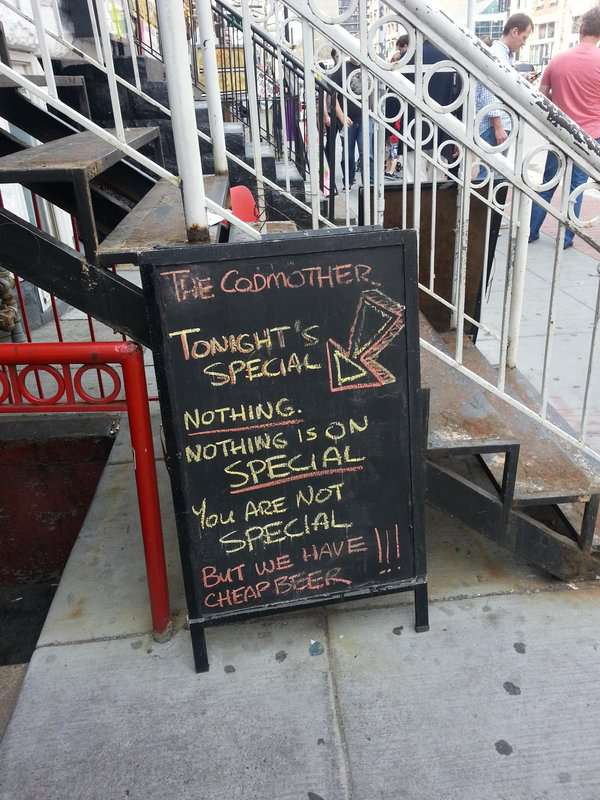 THE CODMOTHER
TONIGHT'S
SPECIAL
NOTHING.
NOTHING IS ON
SPECIAL
YOU ARE NOT
SPECIAL
BUT WE HAVE !!!
CHEAP BEER